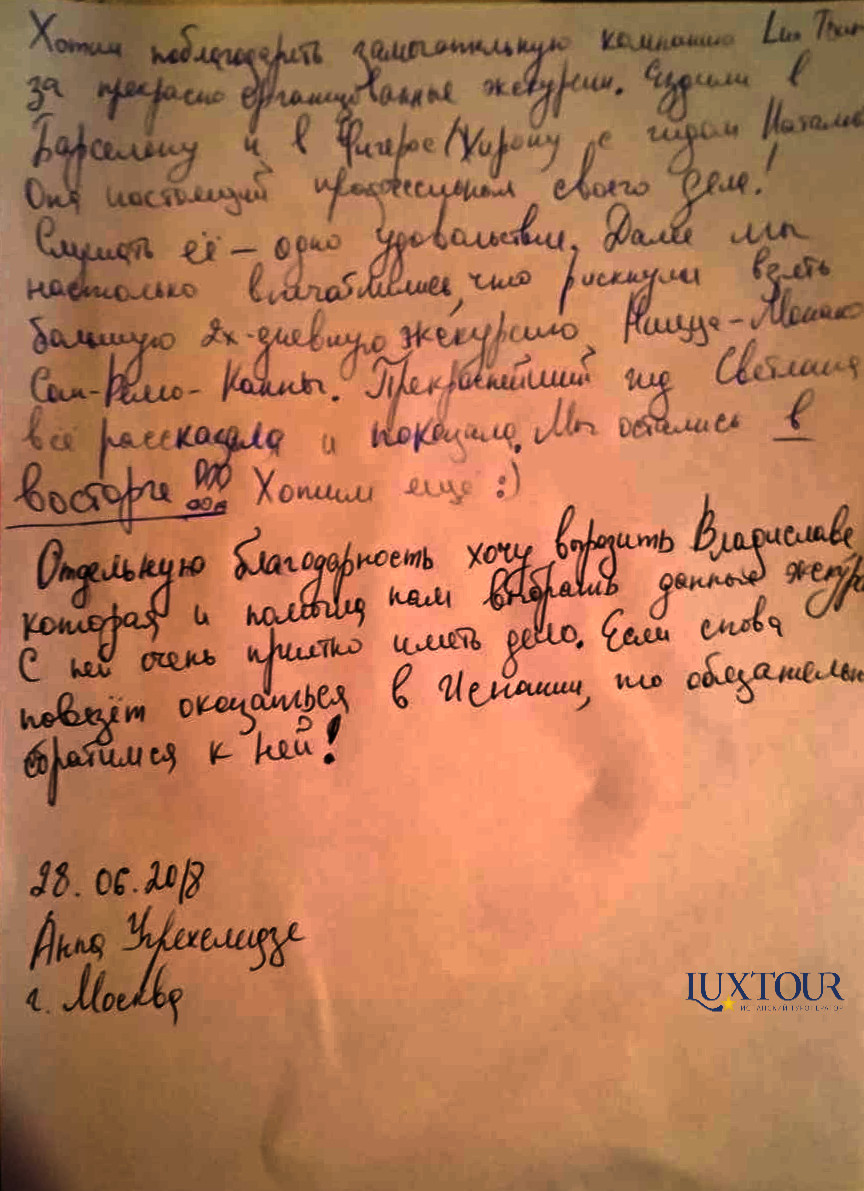 Хотим поблагодарить замечательную компанию Lux Tour
за прекрасно организованные экскурсии. Ездили в
Барселону и в Фигерос/Жирону с гидом Наталье
Она настоящий профессионал своего дела!
Слушать её – одно удовольствие. Далее мы
настолько впечатлились, что рискнули взять
большую 2х-дневную экскурсию Ницца-Монако
Сан-Ремо-Канны. Прекраснейший гид Светлана
всё рассказала и показала. Мы остались в
восторге!!! Хотим ещё :)
Отдельную благодарность хочу выразить Владиславе
которая и помогла нам выбрать данные экскур
С ней очень приятно иметь дело. Если снова
повезёт оказаться в Испании, то обязательн
обратимся к ней!
28.06.2018
Анна
г. Москва
LUXTOUR
ИСПАНСКИЙ ТУРОПЕРАТОР